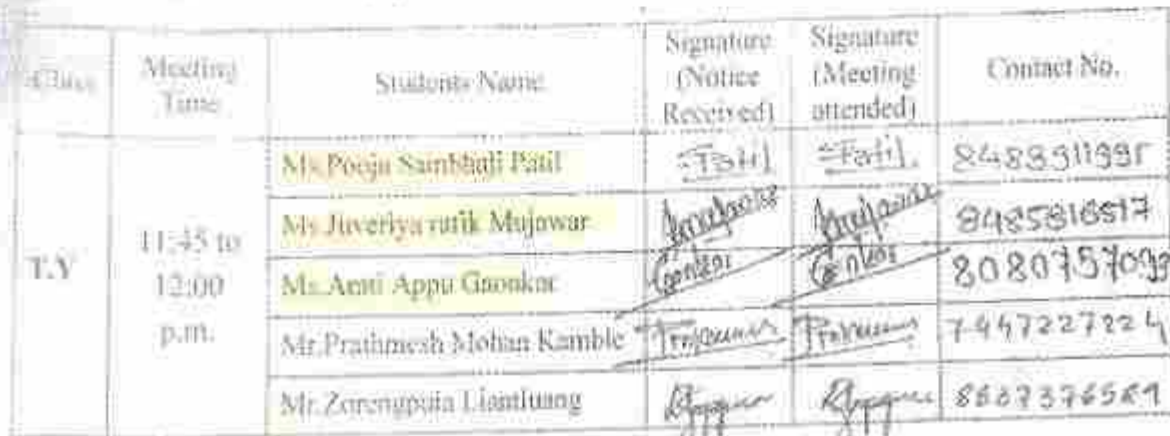 Class
Meeting
Time
Students Name
Signature
(Notice
Received)
Signature
(Meeting
attended)
Contact No.
T.Y
11:45 to
12:00
p.m.
Ms.Pooja Sambhaji Patil
Patil
Patil
Ms.Juveriya rafik Mujawar
Mujawar
Mujawar
8485816517
Ms. Appu Gaonkar
Gaonkar
Gaonkar
Mr.Prathmesh Mohan Kamble
7447227224
Mr.Zorengpuia Lianтluang